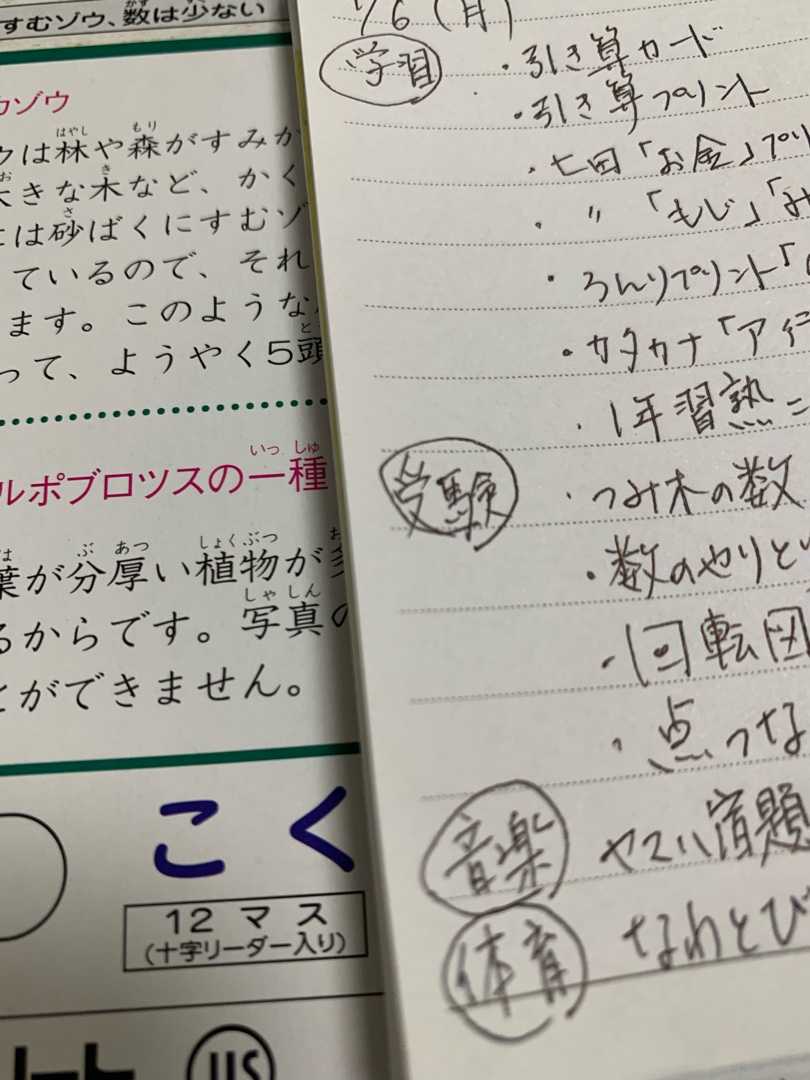 すむゾウ、数は少ない
カゾウ
ウは林や森がすみか
大きな木など、かく
には砂ばくにすむゾ
ているので、それ
ます。このような
って、ようやく5頭
ルポブロツスの一種
葉が分厚い植物が
るからです。写真の
とができません。
こく
12マス
(十字リーダー入り)
JIS
1/6(月)
学習
・引き算カード
・引き算プリント
・七田「お金」プリ
・〃「もじ」「み
・ろんりプリント「
・カタカナ「ア行
・1年習熟
受験
・つみ木の数
・数のやりと
・回転図
・点つな
音楽 ヤマハ宿題
体育 なわとび